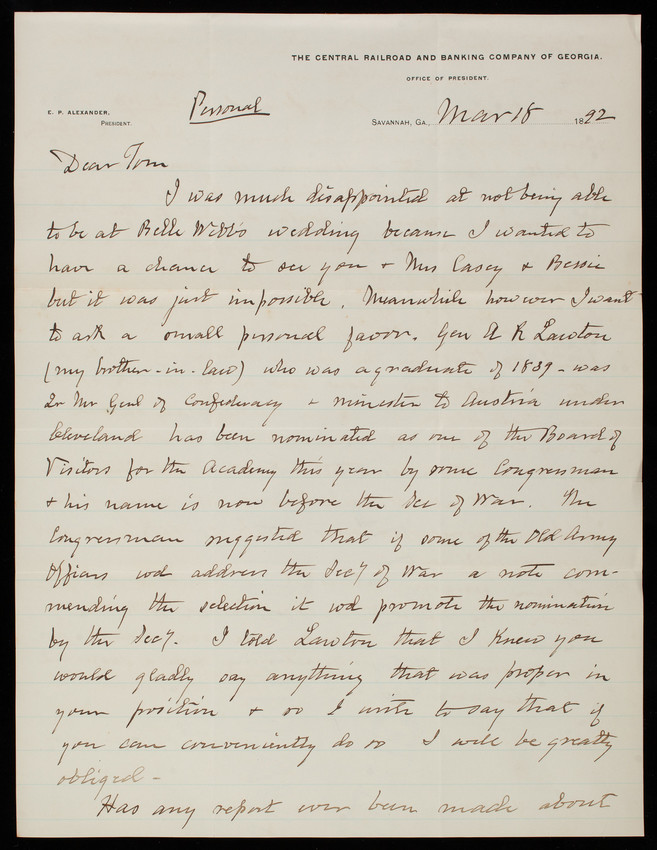 THE CENTRAL RAILROAD AND BANKING COMPANY OF GEORGIA.
OFFICE OF PRESIDENT.
E. P. ALEXANDER,
PRESIDENT.
Personal
SAVANNAH, GA., Mar 18 1892
Dear Tom
I was much disappointed at not being able
to be at Belle Webb's wedding because I wanted to
have a chance to see you + Mrs Casey + Bessie
but it was just impossible. Meanwhile however I want
to ask a small personal favor. Gen A R Lawton
(my brother-in-law) who was a graduate of 1839 - was
Qr Mr Genl of Confederacy + minister to Austria under
Cleveland has been nominated as one of the Board of
Visitors for the Academy this year by some Congressman
+ his name is now before the Sec of War. The
Congressman suggested that if some of the Old Army
Officers wd address the Secy of War a note com-
mending the selection it wd promote the nomination
by the Secy. I told Lawton that I knew you
would gladly say anything that was proper in
your position + so I write to say that if
you can conveniently do so I will be greatly
obliged -
Has any report ever been made about